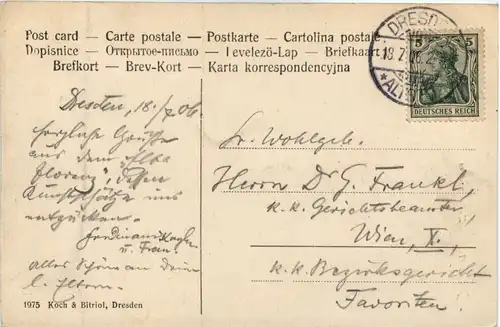 Post card — Carte postale — Postkarte — Cartolina postale
Dopisnice — Открытое-письмо — Levelezö-Lap — Briefkaart
Brefkort — Brev-Kort — Karta korrespondencyjna
DRESD
18.7.06.
*AL
5 5
DEUTSCHES REICH
Dresden, 18./7 06.
herzliche Grüsse
aus dem „Elb-
Florenz", dessen
Kunstschätze uns
entzücken.
Ferdinand
u. Frau.
Alles Schöne an Deine
l. Eltern.
Sr. Wohlgeb.
Herrn Dr G. Frankl,
k. k. Gerichtsbeamter
Wien, X.,
k. k. Bezirksgericht
Favoriten!
1975 Koch & Bitriol, Dresden